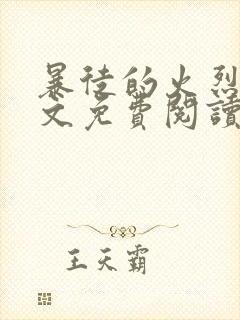 暴徒的火烈
文免費閱讀
王天霸